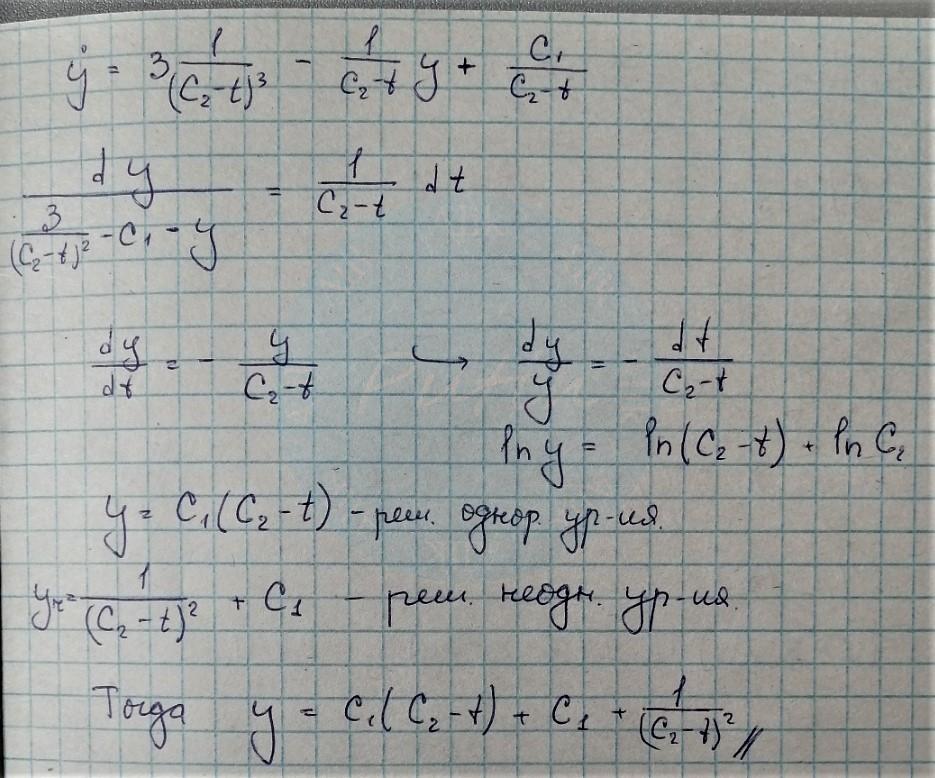 ẏ = 3 1/(C₂-t)³ - 1/(C₂-t) y + C₁/(C₂-t)
dy/(3/(C₂-t)² - C₁ - y) = 1/(C₂-t) dt
dy/dt = - y/(C₂-t) ↪ dy/y = - dt/(C₂-t)
ln y = ln(C₂-t) + ln C₂
y = C₁(C₂-t) - реш. однор. ур-ия.
yч = 1/(C₂-t)² + C₁ - реш. неодн. ур-ия.
Тогда y = C₁(C₂-t) + C₁ + 1/(C₂-t)² //